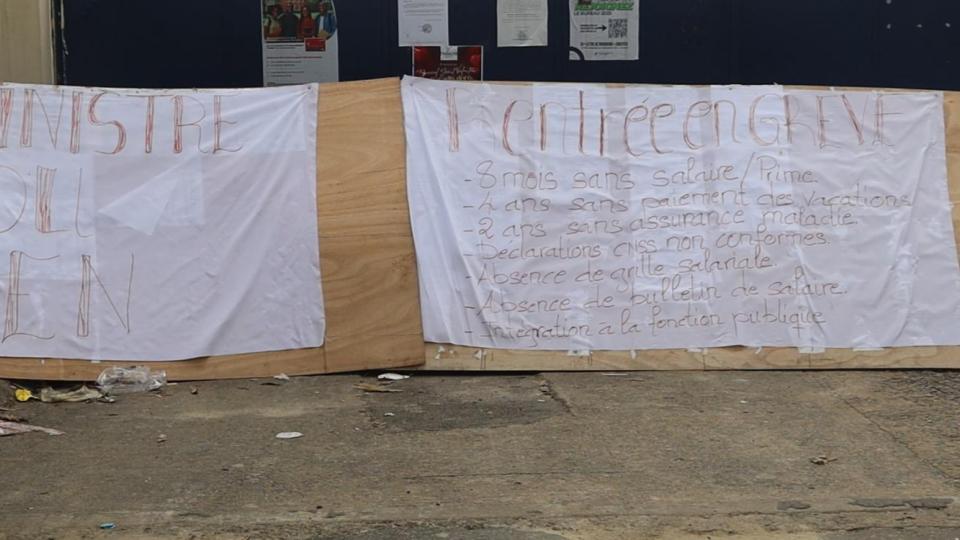 REJOIGNEZ
LE BUREAU
INISTRE
DU
EN
Rentrée en GREVE
- 8 mois sans salaire/Prime.
- 4 ans sans paiement des vacations
- 2 ans sans assurance maladie.
- Déclarations cnss non conformes.
- Absence de grille salariale.
- Absence de bulletin de salaire.
- Intégration a la fonction publique